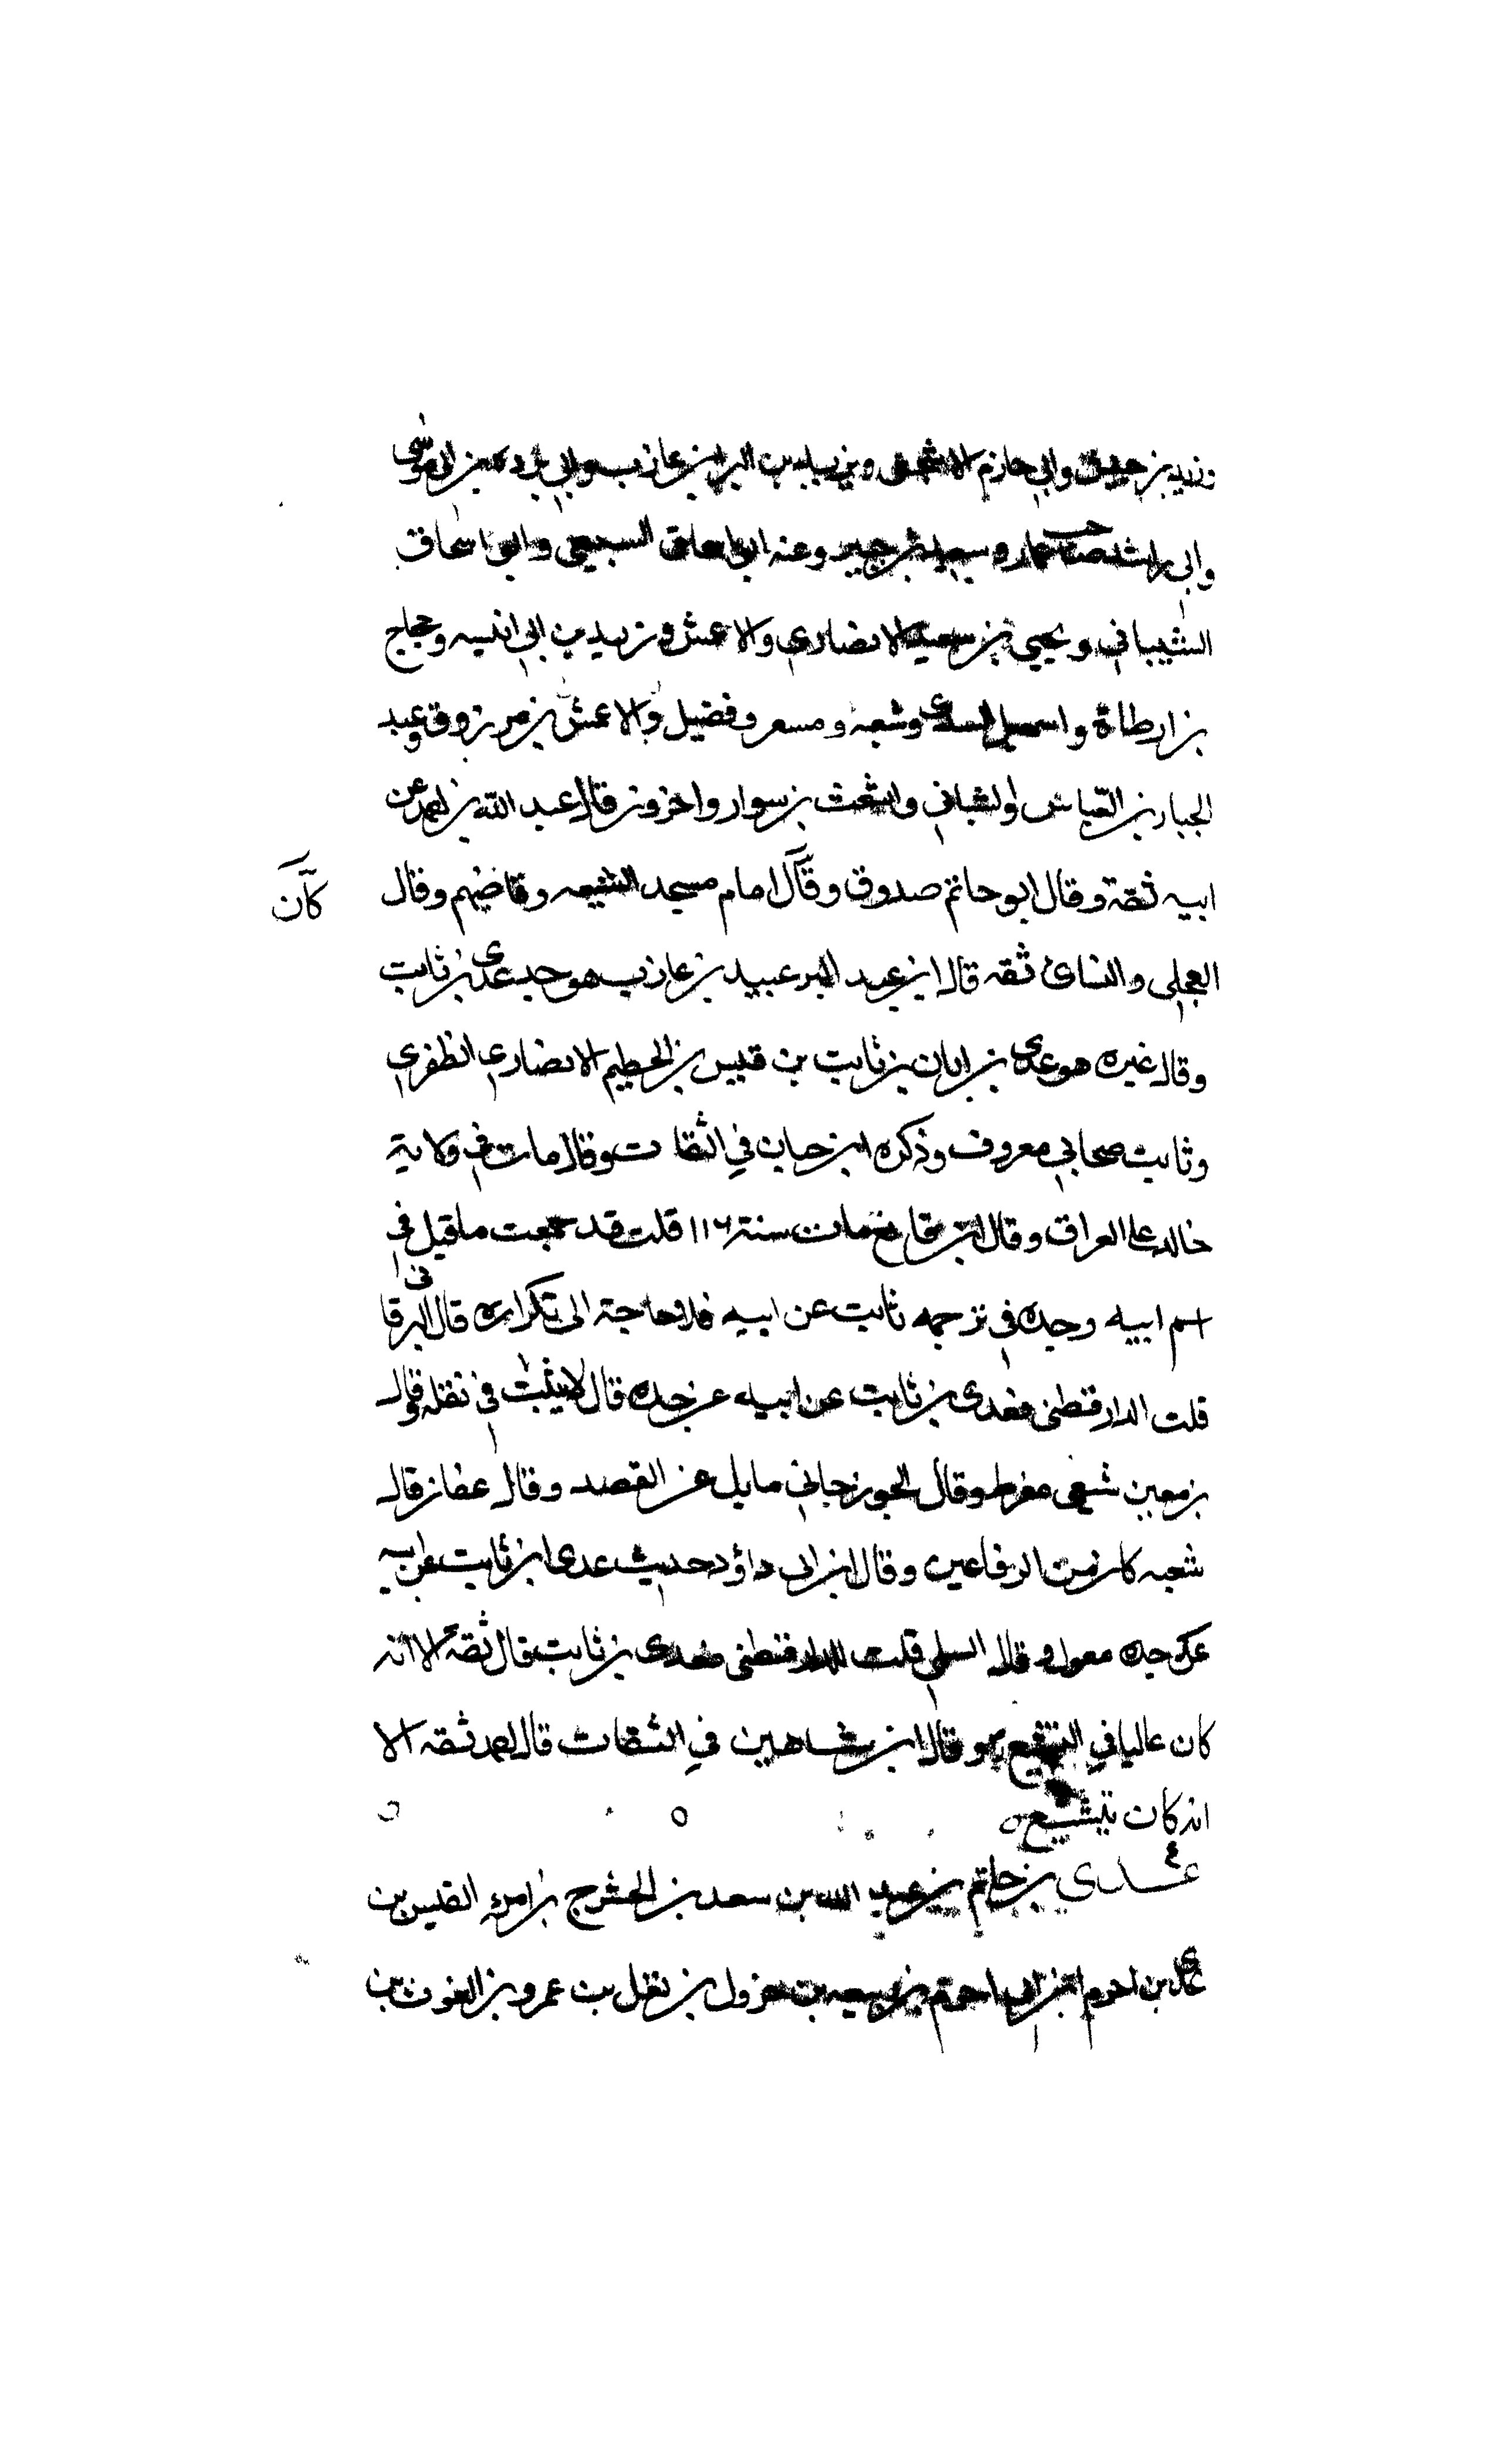 وزيد بن حبيش وابي حازم الاشجعي ويزيد بن البراء بن عازب وابي بردة بن ابي موسى
وابي راشد صاحب عمار وسعيد بن جبير وعنه ابو اسحاق السبيعي وابو اسحاق
الشيباني ويحيى بن سعيد الانصاري والاعمش وزيد بن ابي انيسه وحجاج
بن ارطاة واسمعيل السدي وشعبه ومسعر وفضيل والاعمش بن مرزوق وعبد
الجبار بن العباس والشباني واشعث بن سوار واخرون قال عبد الله بن احمد عن
ابيه ثقة وقال ابو حاتم صدوق وقال امام مسجد الشيعه وقاضيهم وقال
كان
العجلي والنسائ ثقه قال ابن عبد البر عبيد بن عازب هو جد عدي بن ثابت
وقال غيره هو عدي بن ابان بن ثابت بن قيس بن الخطيم الانصاري الظفري
وثابت صحابي معروف وذكره ابن حبان في الثقات وقال مات في ولاية
خالد على العراق وقال ابن قانع مات سنة ١١٦ قلت قد جمعت ما قيل في
اسم ابيه وجده في ترجمه ثابت عن ابيه فلا حاجة الى تكراره قال البرقاني
قلت الدارقطني فعدي بن ثابت عن ابيه عن جده قال لا يثبت في نفله وقال
بن معين شيعي مفرط وقال الجوزجاني مايل عن القصد وقال عفان قال
شعبه كان من الرفاعين وقال ابن ابي داؤد حديث عدي ابن ثابت عن ابيه
عن جده معلول وقال السلمي قلت للدارقطني فعدي بن ثابت قال ثقة الا انه
كان غاليا في التشيع وقال ابن شاهين في الثقات قال احمد ثقه الا
انه كان يتشيع
ع
عدي بن حاتم بن عبد الله بن سعد بن الحشرج بن امرء القيس بن
عدي بن اخزم ابن ابي اخزم بن ربيعه بن جرول بن ثعل بن عمرو بن الغوث بن